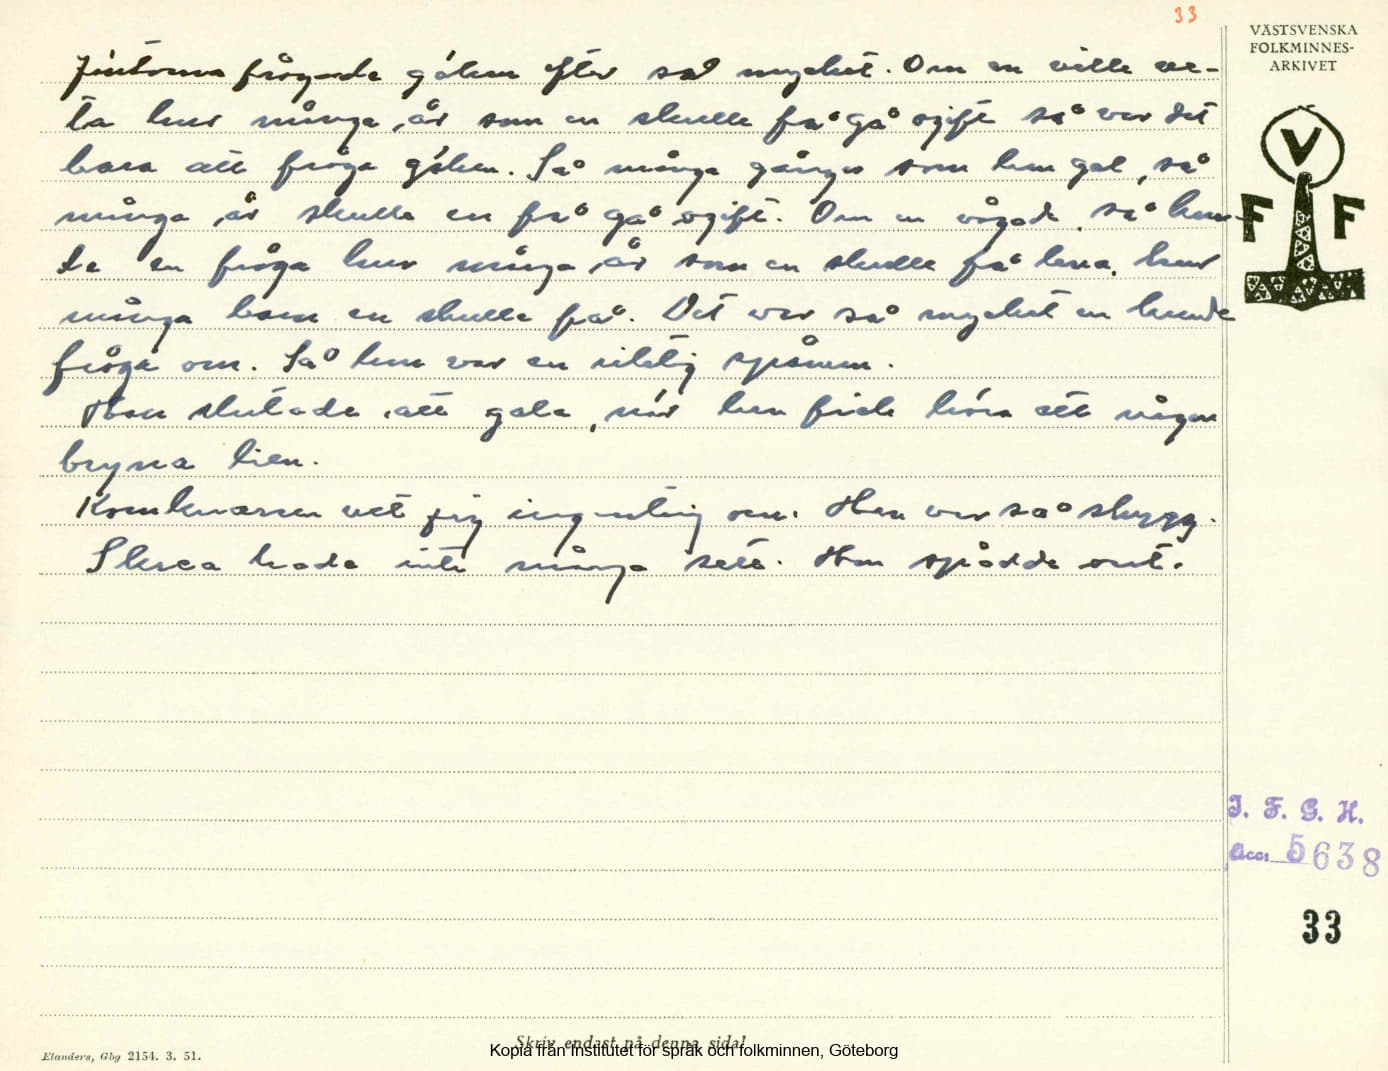 33
VÄSTSVENSKA
FOLKMINNES-
ARKIVET
V
F F
Jäntorna frågade göken efter så mycket. Om en ville ve-
ta hur många år som en skulle få gå ogift så var det
bara att fråga göken. Så många gånger som han gol, så
många år skulle en få gå ogift. Om en vågade, så kun-
de en fråga hur många år som en skulle få leva, hur
många barn en skulle få. Det var så mycket en kunde
fråga om. Så han var en riktig spåman.
Han slutade att gala, när han fick höra att någon
bryna lien.
Kornknarren vet jag ingenting om. Han var så skygg.
Skrea hade inte många sett. Hon spådde ont.
I. F. G. H.
Acc: 5638
33
Skriv endast på denna sida!
Kopia från Institutet för språk och folkminnen, Göteborg
Elanders, Gbg 2154. 3. 51.